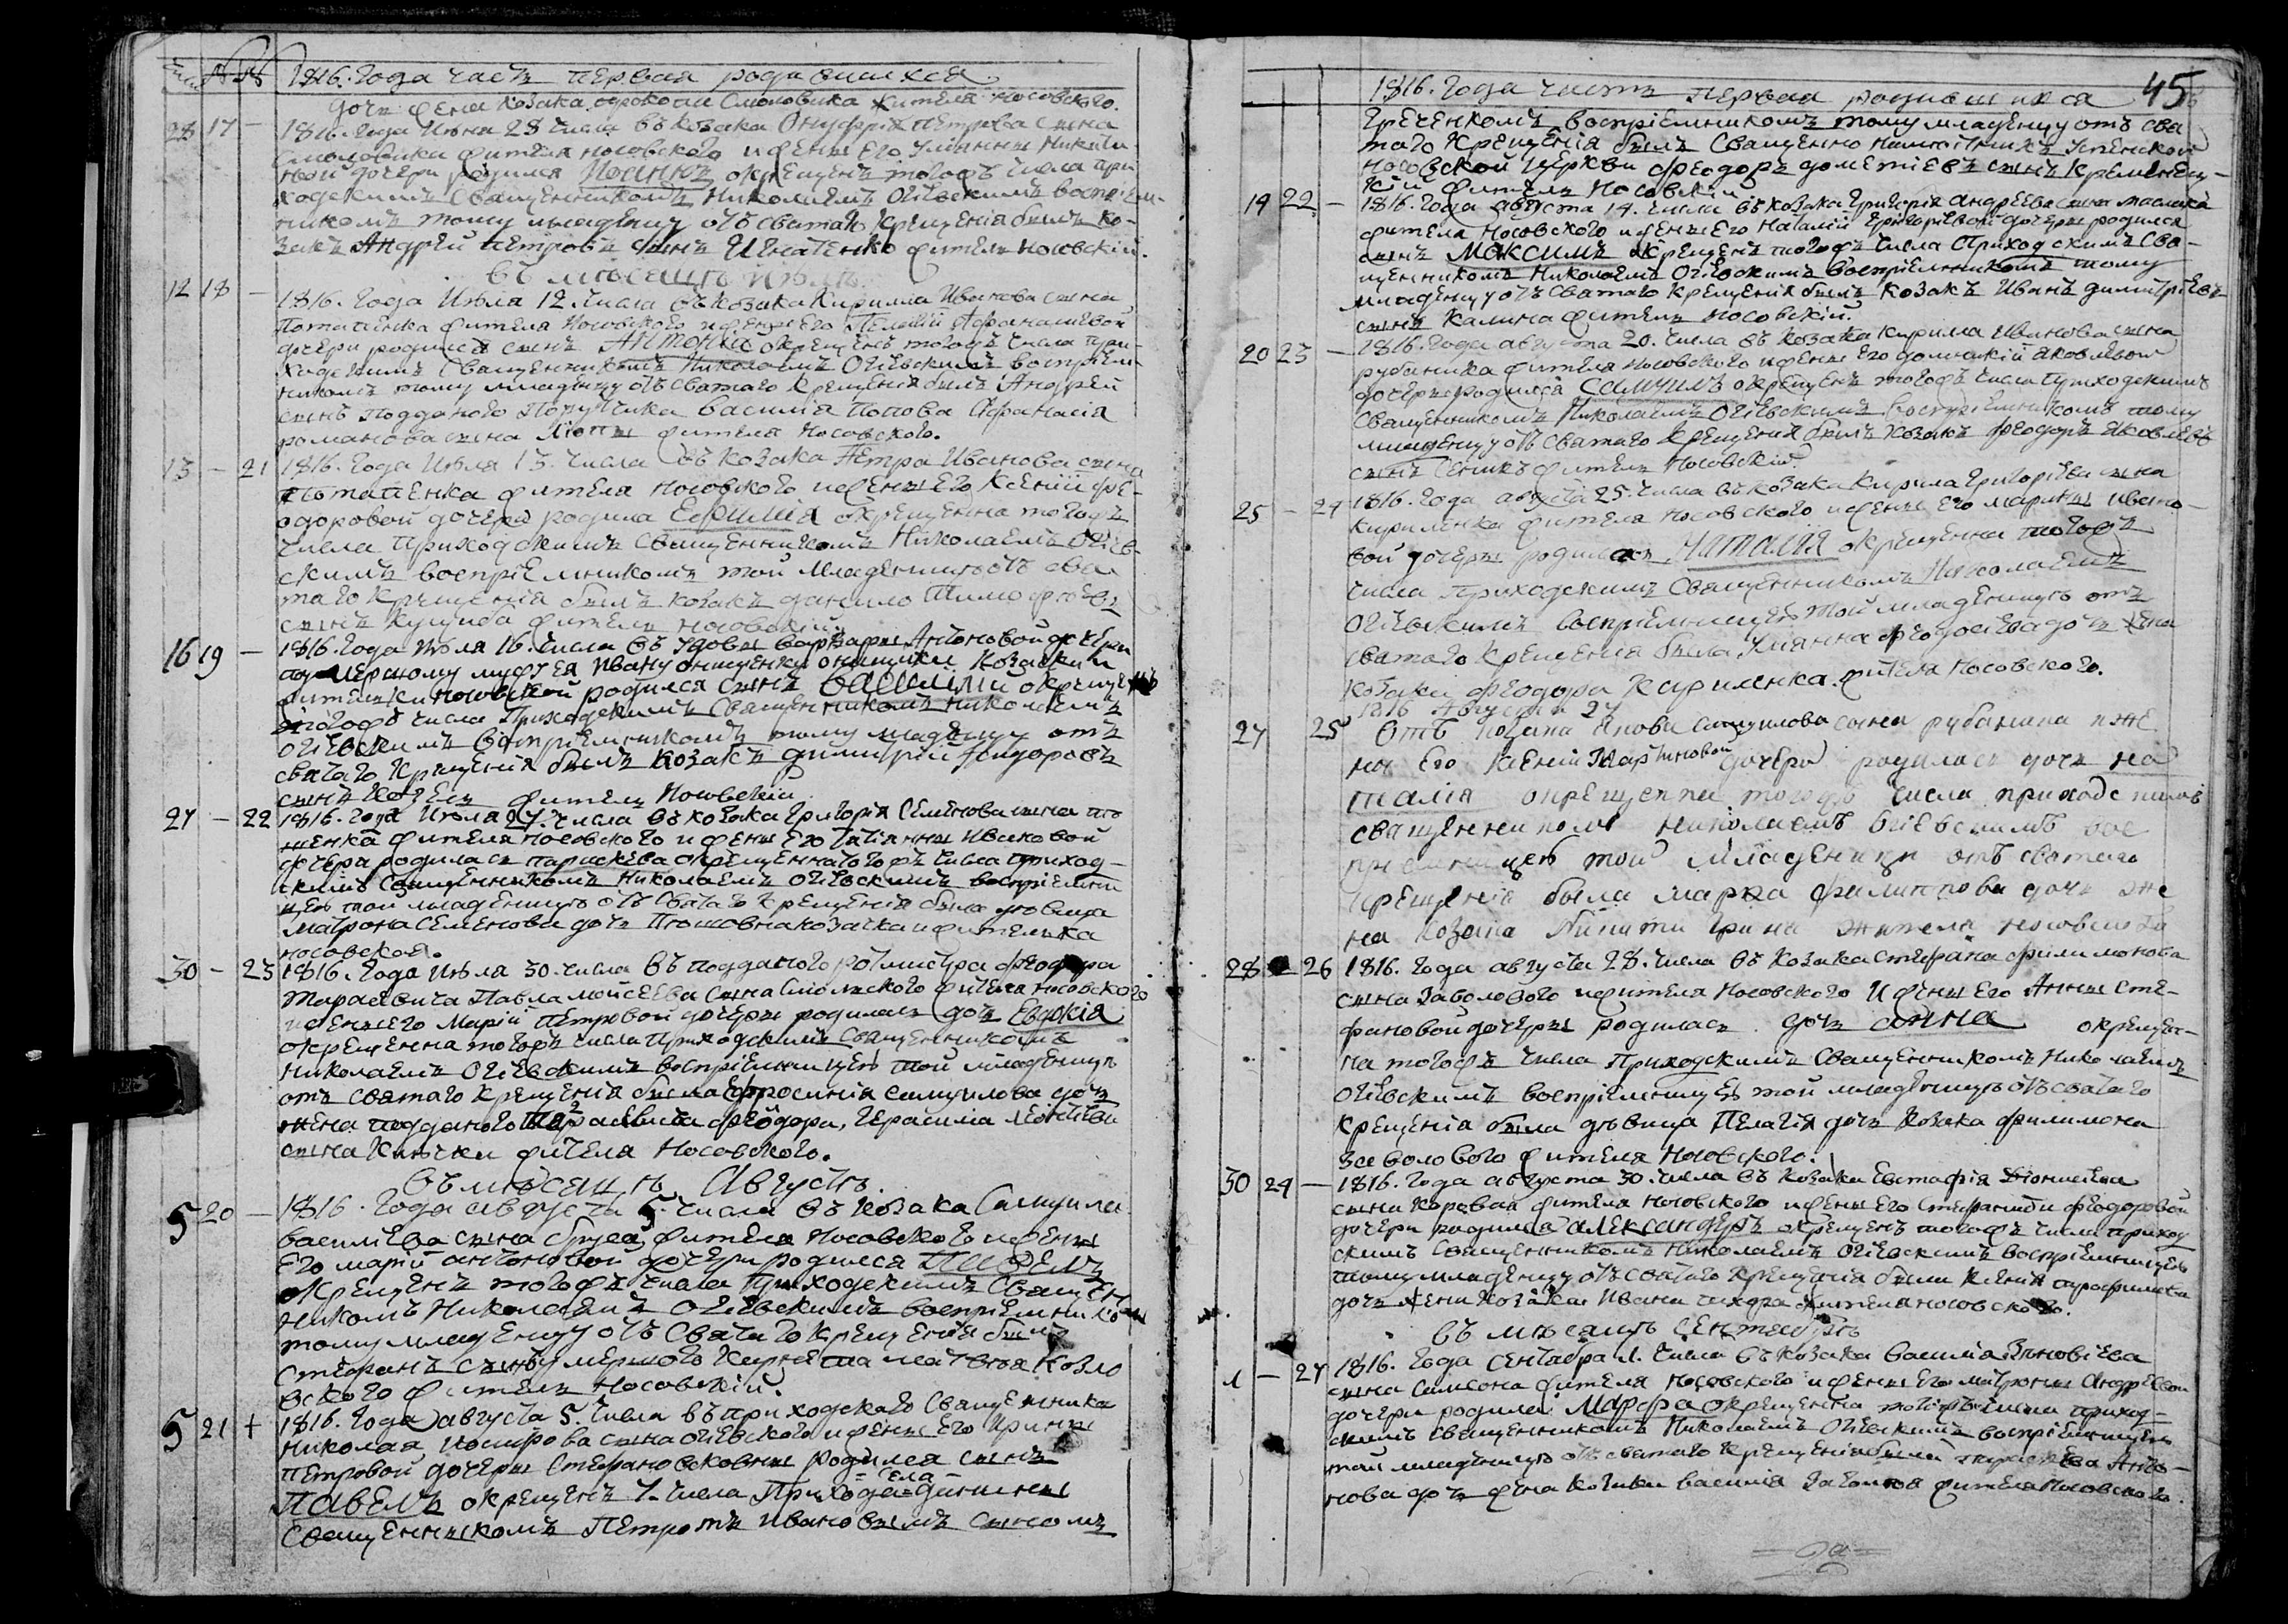 Числ №№ 1816. Года часть первая родившихся
дочь жена козака Смоловика жителя Носовского.
28 17 – 1816. Года Июня 28 числа въ козака Онуфрія Петрова сына
Смоловика жителя носовского и жены его Уліянны Никити-
ной дочери родился Иоаннъ окрещенъ тогожъ числа при
ходскимъ Священникомъ Николаемъ Огіевскимъ воспріем-
никомъ тому младенцу отъ святаго крещенія былъ ко-
закъ Андрей Петровъ сынъ Игнатенко житель носовскій.
въ месяцѣ Июлѣ
12 18 – 1816. Года Июля 12. числа въ козака Кирила Иванова сына
Потапенка жителя Носовского и жены его Пелагіи Афанасіевой
дочери родился сынъ Антоній окрещенъ тогожъ числа при-
ходскимъ Священникомъ Николаемъ Огіевскимъ воспріем-
никомъ тому младенцу отъ святаго крещенія былъ Андрей
сынъ подданого Поручика Василія Попова Афанасія
романова сына жителя Носовского.
13 – 21 1816. Года Июля 13. числа въ козака Петра Иванова сына
Потапенка жителя носовского и жены его Ксеніи Фе-
одоровой дочери родила Евфимія окрещенна тогожъ
числа приходскимъ священникомъ Николаемъ Огіев-
скимъ воспріемникомъ той младеницѣ отъ свя
таго крещенія былъ козакъ данило Тимофѣевъ
сынъ Куцуба житель носовскій.
16 19 – 1816. Года Июля 16. числа въ удовы Варвары Антоновой дочери
по мершому мужу ея Ивану онищенку козачки
жителки носовской родился сынъ Василій окрещенъ
тогожъ числа Приходскимъ Священникомъ Николаемъ
Огіевскимъ воспріемникомъ тому младенцу отъ
святаго крещенія былъ козакъ Димитрій
сынъ житель Носовскій
27 – 22 1816. Года Июля 27. числа въ козака Григорія Семенова сына
жителя носовского и жены его татіянны Ивановой
дочери родилась параскева окрещенна тогожъ числа приход-
скимъ Священникомъ Николаемъ Огіевскимъ воспріемни
цею той младеницѣ отъ Святаго крещенія была
Матрона Семенова дочь козачка и жителька
носовская.
30 – 23 1816. Года Июля 30. числа въ подданого ротмистра Феодора
Тарасевича Павла мойсеева сына Смольского жителя носовского
и жены его Маріи Петровой дочери родилась дочь Евдокія
окрещенна тогожъ числа Приходскимъ Священникомъ
Николаемъ Огіевскимъ воспріемницею той младеницѣ
отъ святаго крещенія была Ефросинія самуилова дочь
жена подданого Тарасевича Феодора, Герасима
сына жителя Носовского.
Въ мѣсяцѣ Августѣ.
5 20 – 1816. Года августа 5. числа въ козака Самуила
василіева сына жителя Носовского и жены
его маріи антоновой дочери родился
окрещенъ тогожъ числа Приходскимъ Священ
никомъ Николаемъ Огіевскимъ воспріемникомъ
тому младенцу отъ Святаго крещенія былъ
стефанъ сынъ умершого матвѣя Козло
вского житель Носовскій.
5 21 + 1816. Года августа 5. числа въ приходского Священника
Николая сына огіевского и жены его Ирины
Петровой дочери Стефановсковны родился сынъ
Павелъ окрещенъ 7. числа
Священникомъ Петромъ Ивановымъ сыномъ
45
1816. Года часть первая родившихся
Греченкомъ воспріемникомъ тому младенцу отъ свя
таго крещенія былъ Священно Успенской
носовской церкви Феодоръ дометіевъ сынъ Кременец-
кій житель Носовскій
19 22 – 1816. Года августа 19. числа въ козака Григорія Андреева сына
жителя Носовского и жены его Наталіи Григоріевой дочери родился
сынъ Максимъ окрещенъ тогожъ числа Приходскимъ Свя-
щенникомъ Николаемъ Огіевскимъ воспріемникомъ тому
младенцу отъ Святаго крещенія былъ козакъ Иванъ димитріевъ
сынъ Калина житель носовскій.
20 23 – 1816. Года августа 20. числа въ козака Кирила Иванова сына
рубаника жителя носовского и жены его домникіи яковлевой
дочери родился Самуилъ окрещенъ тогожъ числа Приходскимъ
Священникомъ Николаемъ Огіевскимъ воспріемникомъ тому
младенцу отъ Святаго крещенія былъ козакъ Феодоръ яковлевъ
сынъ житель Носовскій.
25 – 24 1816. Года августа 25. числа въ козака Кирила Григоріева сына
Кириленка жителя носовского и жены его марины Ивано-
вой дочери родилась Наталія окрещенна тогожъ
числа Приходскимъ Священникомъ Николаемъ
Огіевскимъ воспріемницею той младеницѣ отъ
святаго крещенія была Уліянна Феодосіева дочь жена
козака Феодора Кириленка жителя Носовского.
1816 Августа 27
27 25 Отъ козака самуилова сына рубанина и же
ны его Ксеніи Мартиновой дочери родилась дочь на
талія окрещенна тогожъ числа приходскимъ
священникомъ Николаемъ Огіевскимъ вос
пріемницею той младеницы отъ святаго
крещенія была Марѳа филиппова дочь же
на козака Никити жителя носовского
28 – 26 1816. Года августа 28. числа въ козака стефана филимонова
сына Заволового жителя Носовского и жены его Анны Сте-
фановой дочери родилась дочь анна окрещен-
на тогожъ числа Приходскимъ Священникомъ Николаемъ
Огіевскимъ воспріемницею той младеницѣ отъ святаго
крещенія была дѣвица Пелагія дочь козака филимона
Заволового жителя Носовского.
30 24 – 1816. Года августа 30. числа въ козака Евстафія Діонисіева
сына Коровая жителя Носовского и жены его Стефаниды Феодоровой
дочери родился александръ окрещенъ тогожъ числа приход
скимъ Священникомъ Николаемъ Огіевскимъ воспріемницею
тому младенцу отъ святаго крещенія была Ксенія трофимова
дочь жена козака Ивана жителя носовского.
въ мѣсяцѣ Сентябрѣ
1 – 27 1816. Года Сентября 1. числа въ козака Василія Зѣновіева
сына Самсона жителя Носовского и жены его матроны Андреевой
дочери родилась Марѳа окрещенна тогожъ числа приход-
скимъ Священникомъ Николаемъ Огіевскимъ воспріемницею
той младеницѣ отъ святаго крещенія была параскева Анто-
нова дочь жена козака василія жителя Носовского.